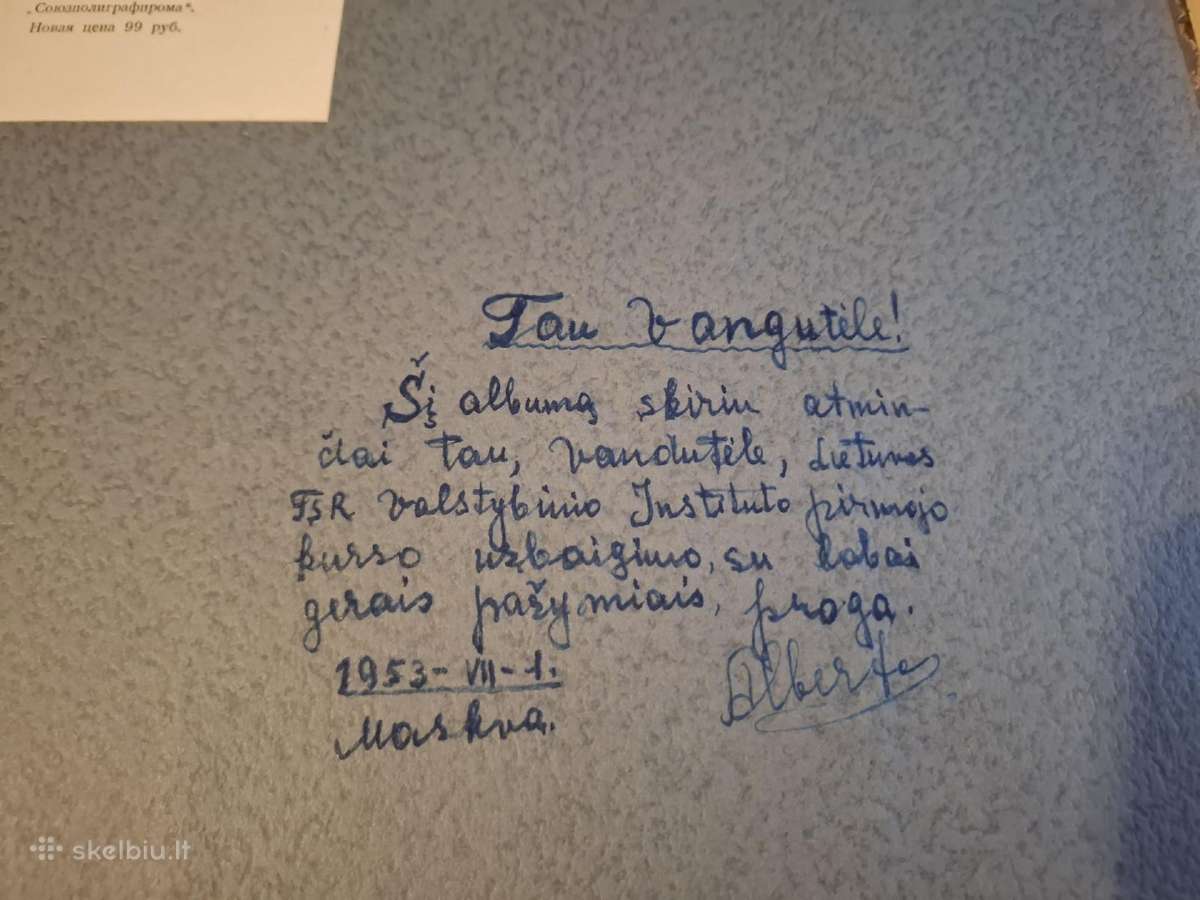 „Союзполиграфпрома“.
Новая цена 99 руб.
Tau Vangutėle!
Šį albumą skiriu atmin-
čiai tau, Vandutėle, Lietuvos
TSR Valstybinio Instituto pirmojo
kurso užbaigimo, su labai
gerais pažymiais, proga.
1953-VII-1.
Maskva.
skelbiu.lt